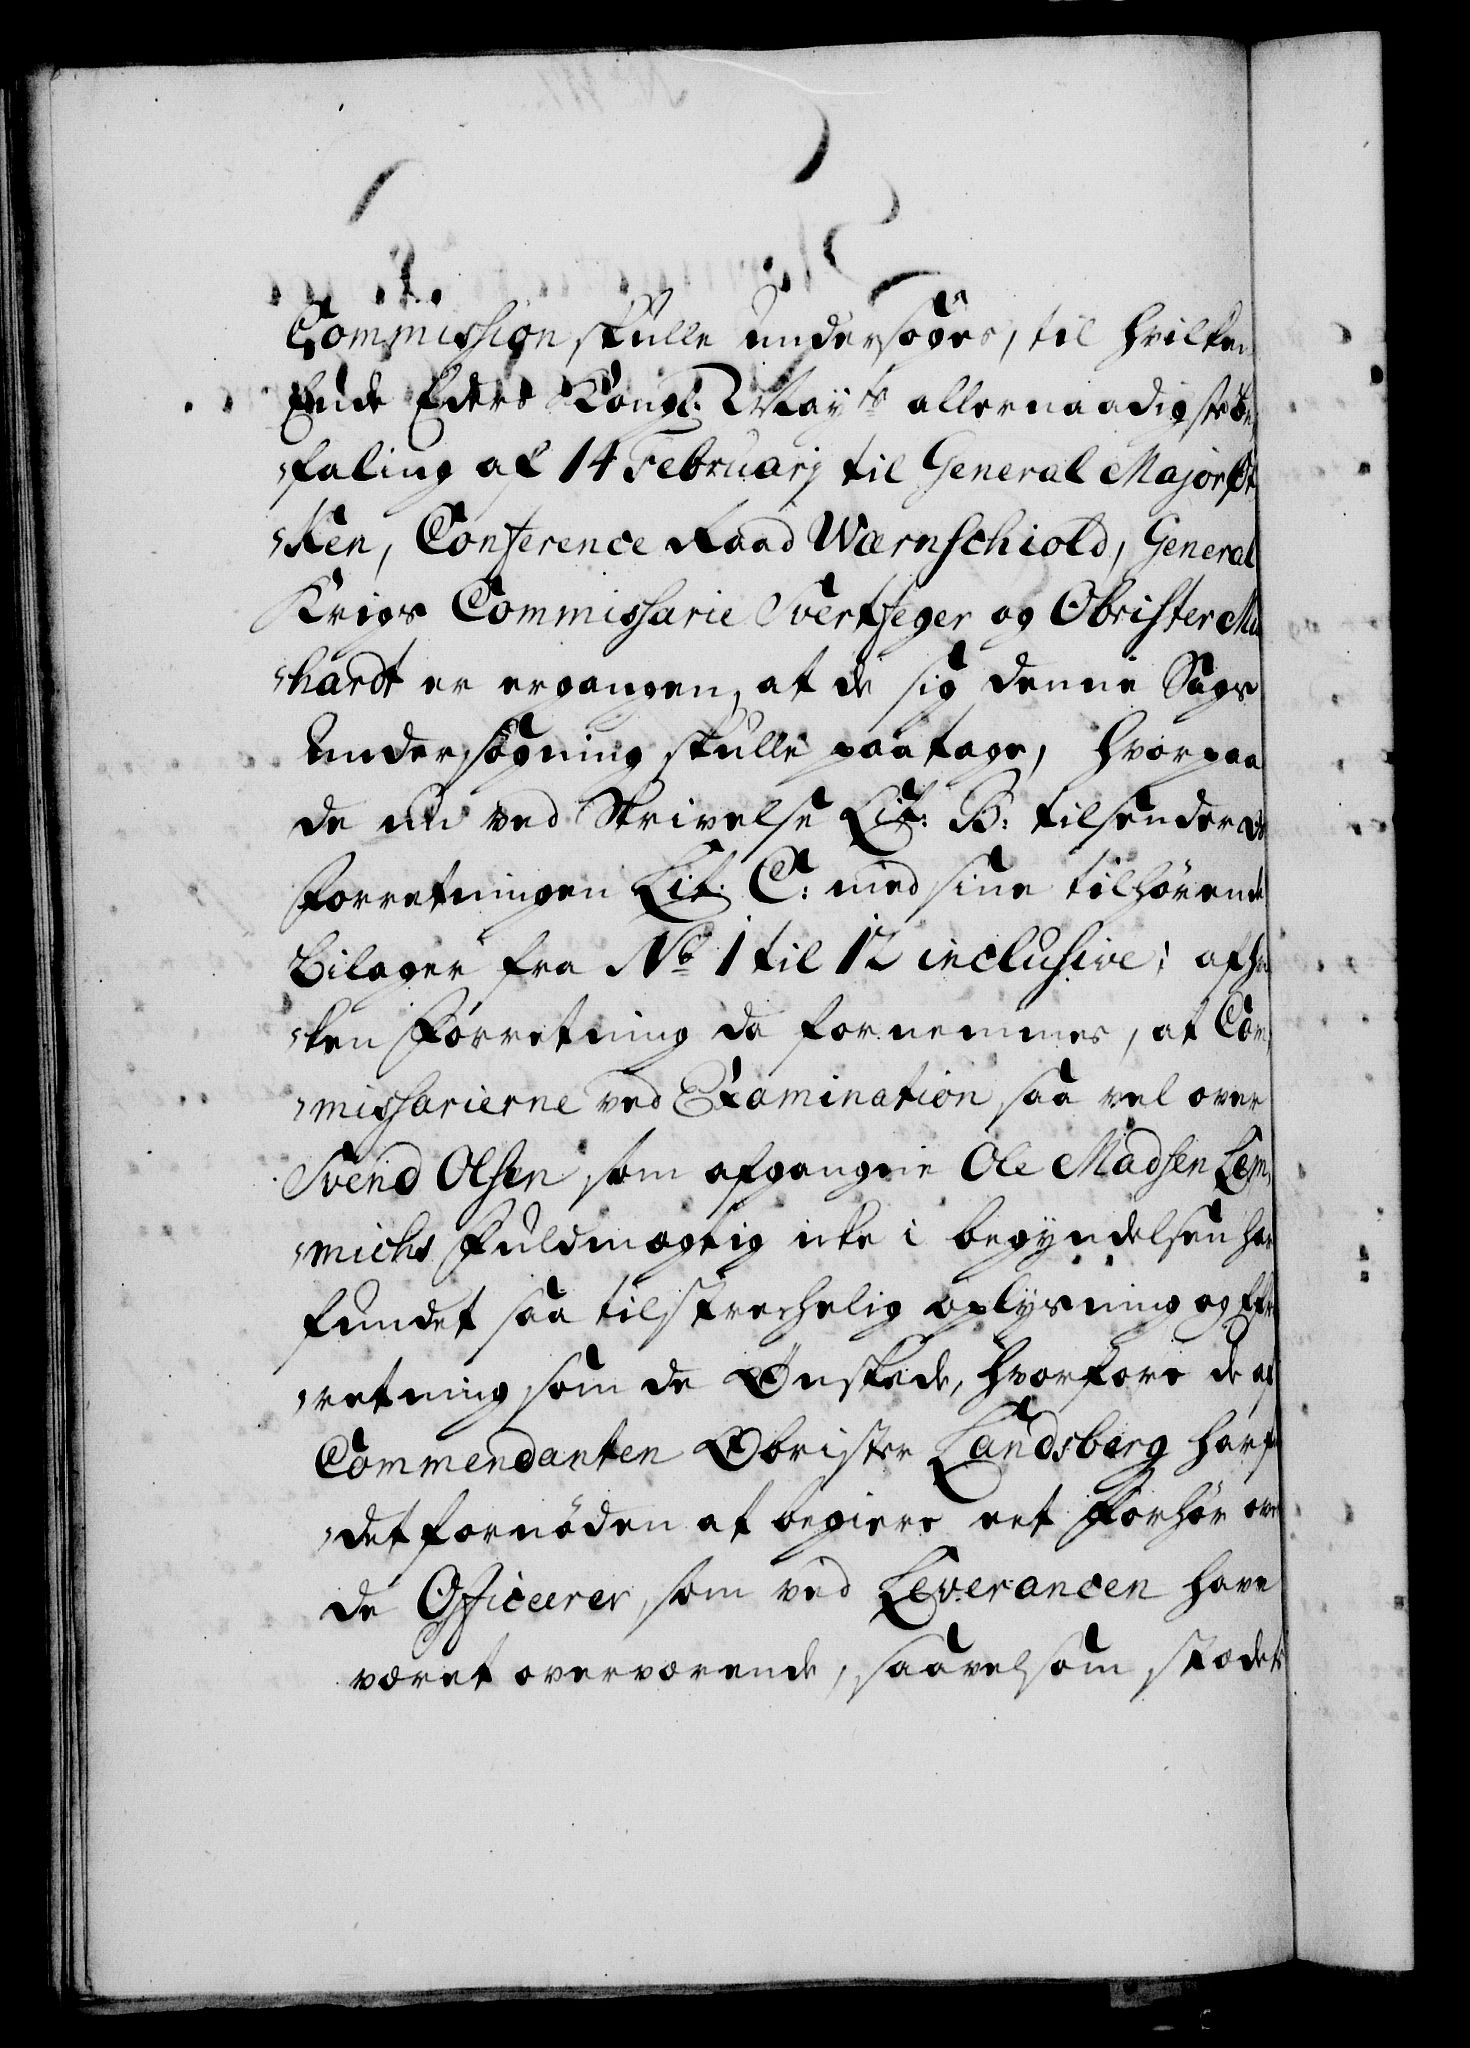 Commission skulle undersøges, til hvilken
Ende Eders Kongl. May.ts allernaadigste be,
,faling af 14 Februarij til General Major
,ken, Conference Raad Wærnschiold, General
Krigs Commissarie Svertfeger og Obrister
,hardt er ergangen, at de sig denne Sags
undersøgning skulle paatage, hvorpaa
de nu ved Skrivelse Lit: B: tilsender
Forretningen Lit. C: med sine tilhørende
Bilager fra No 1 til 12 inclusive; af
,ken Forretning da fornemmes, at Com,
,missarierne ved Examination saa vel over
Svend Olsen som afgangne Ole Madsen Lem,
,michs Fuldmægtig icke i begyndelsen har
fundet saa tilstrechelig oplysning og
,retning som de Ønskede, hvorfore de af
Commendanten Obrister Landsberg har
,det fornøden at begiere eet Forhør over
de Officerer, som ved Leverancen have
været overværende, saavelsom stædets